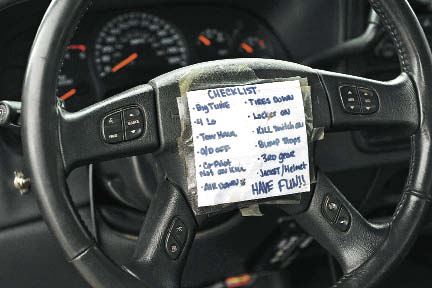 CHECKLIST:
- Big TUNE
- 4 LO
- Tow HAUL
- O/D OFF
- Co-Pilot
Not on Kill
- AIR DOWN
- TIRES DOWN
- Locker on
- KILL Switch on
- Bump Stops
- 3RD gear
- Jacket/Helmet
HAVE FUN!!